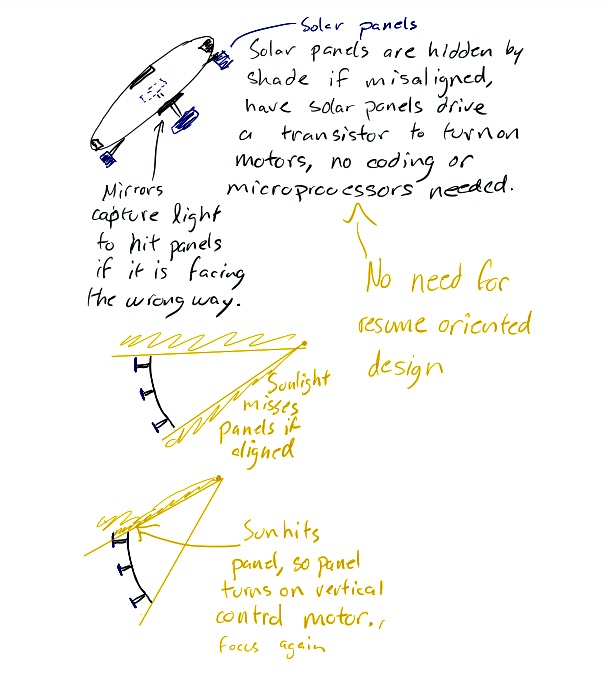 Solar panels
Solar panels are hidden by
shade if misaligned,
have solar panels drive
a transistor to turn on
motors, no coding or
microprocessors needed.
Mirrors
capture light
to hit panels
if it is facing
the wrong way.
No need for
resume oriented
design
Sunlight
misses
panels if
aligned
Sun hits
panel, so panel
turns on vertical
control motor.,
focus again